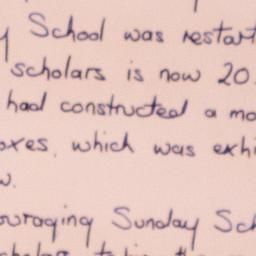 y School was restart
scholars is now 20.
had constructed a mo
oxes, which was exhi
w.
ouraging Sunday Sch